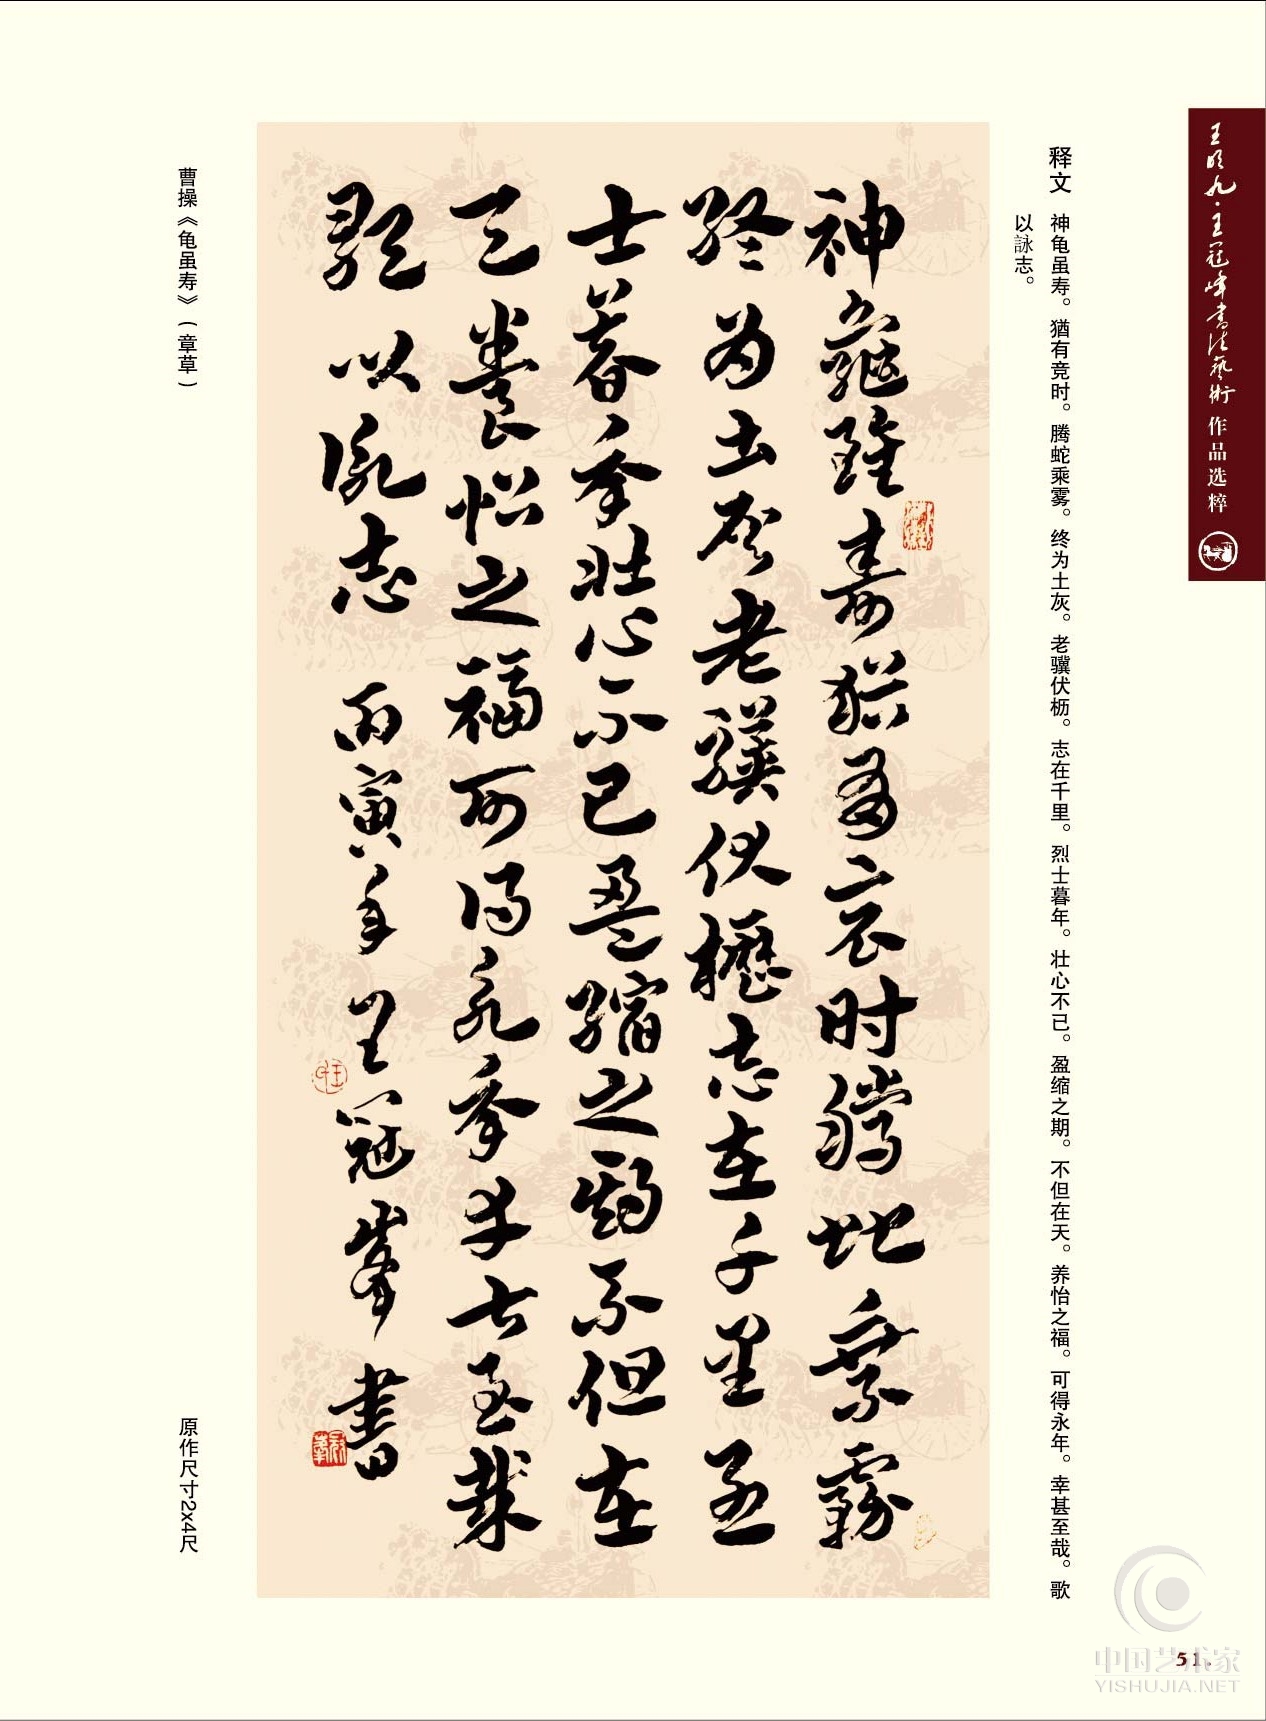 王明九·王冠峰書法藝術作品选粹
释文 神龟虽寿。猶有竞时。腾蛇乘雾。终为土灰。老骥伏枥。志在千里。烈士暮年。壮心不已。盈缩之期。不但在天。养怡之福。可得永年。幸甚至哉。歌
以詠志。
神龜雖壽猶有竟时騰虵乘霧
終为土灰老驥伏櫪志在千里烈
士暮年壯心不已盈縮之期不但在
天養怡之福可得永年幸甚至哉
歌以詠志 丙寅年 王冠峯書
曹操《龟虽寿》(章草)
原作尺寸2x4尺
51.
中国艺术家
YISHUJIA.NET